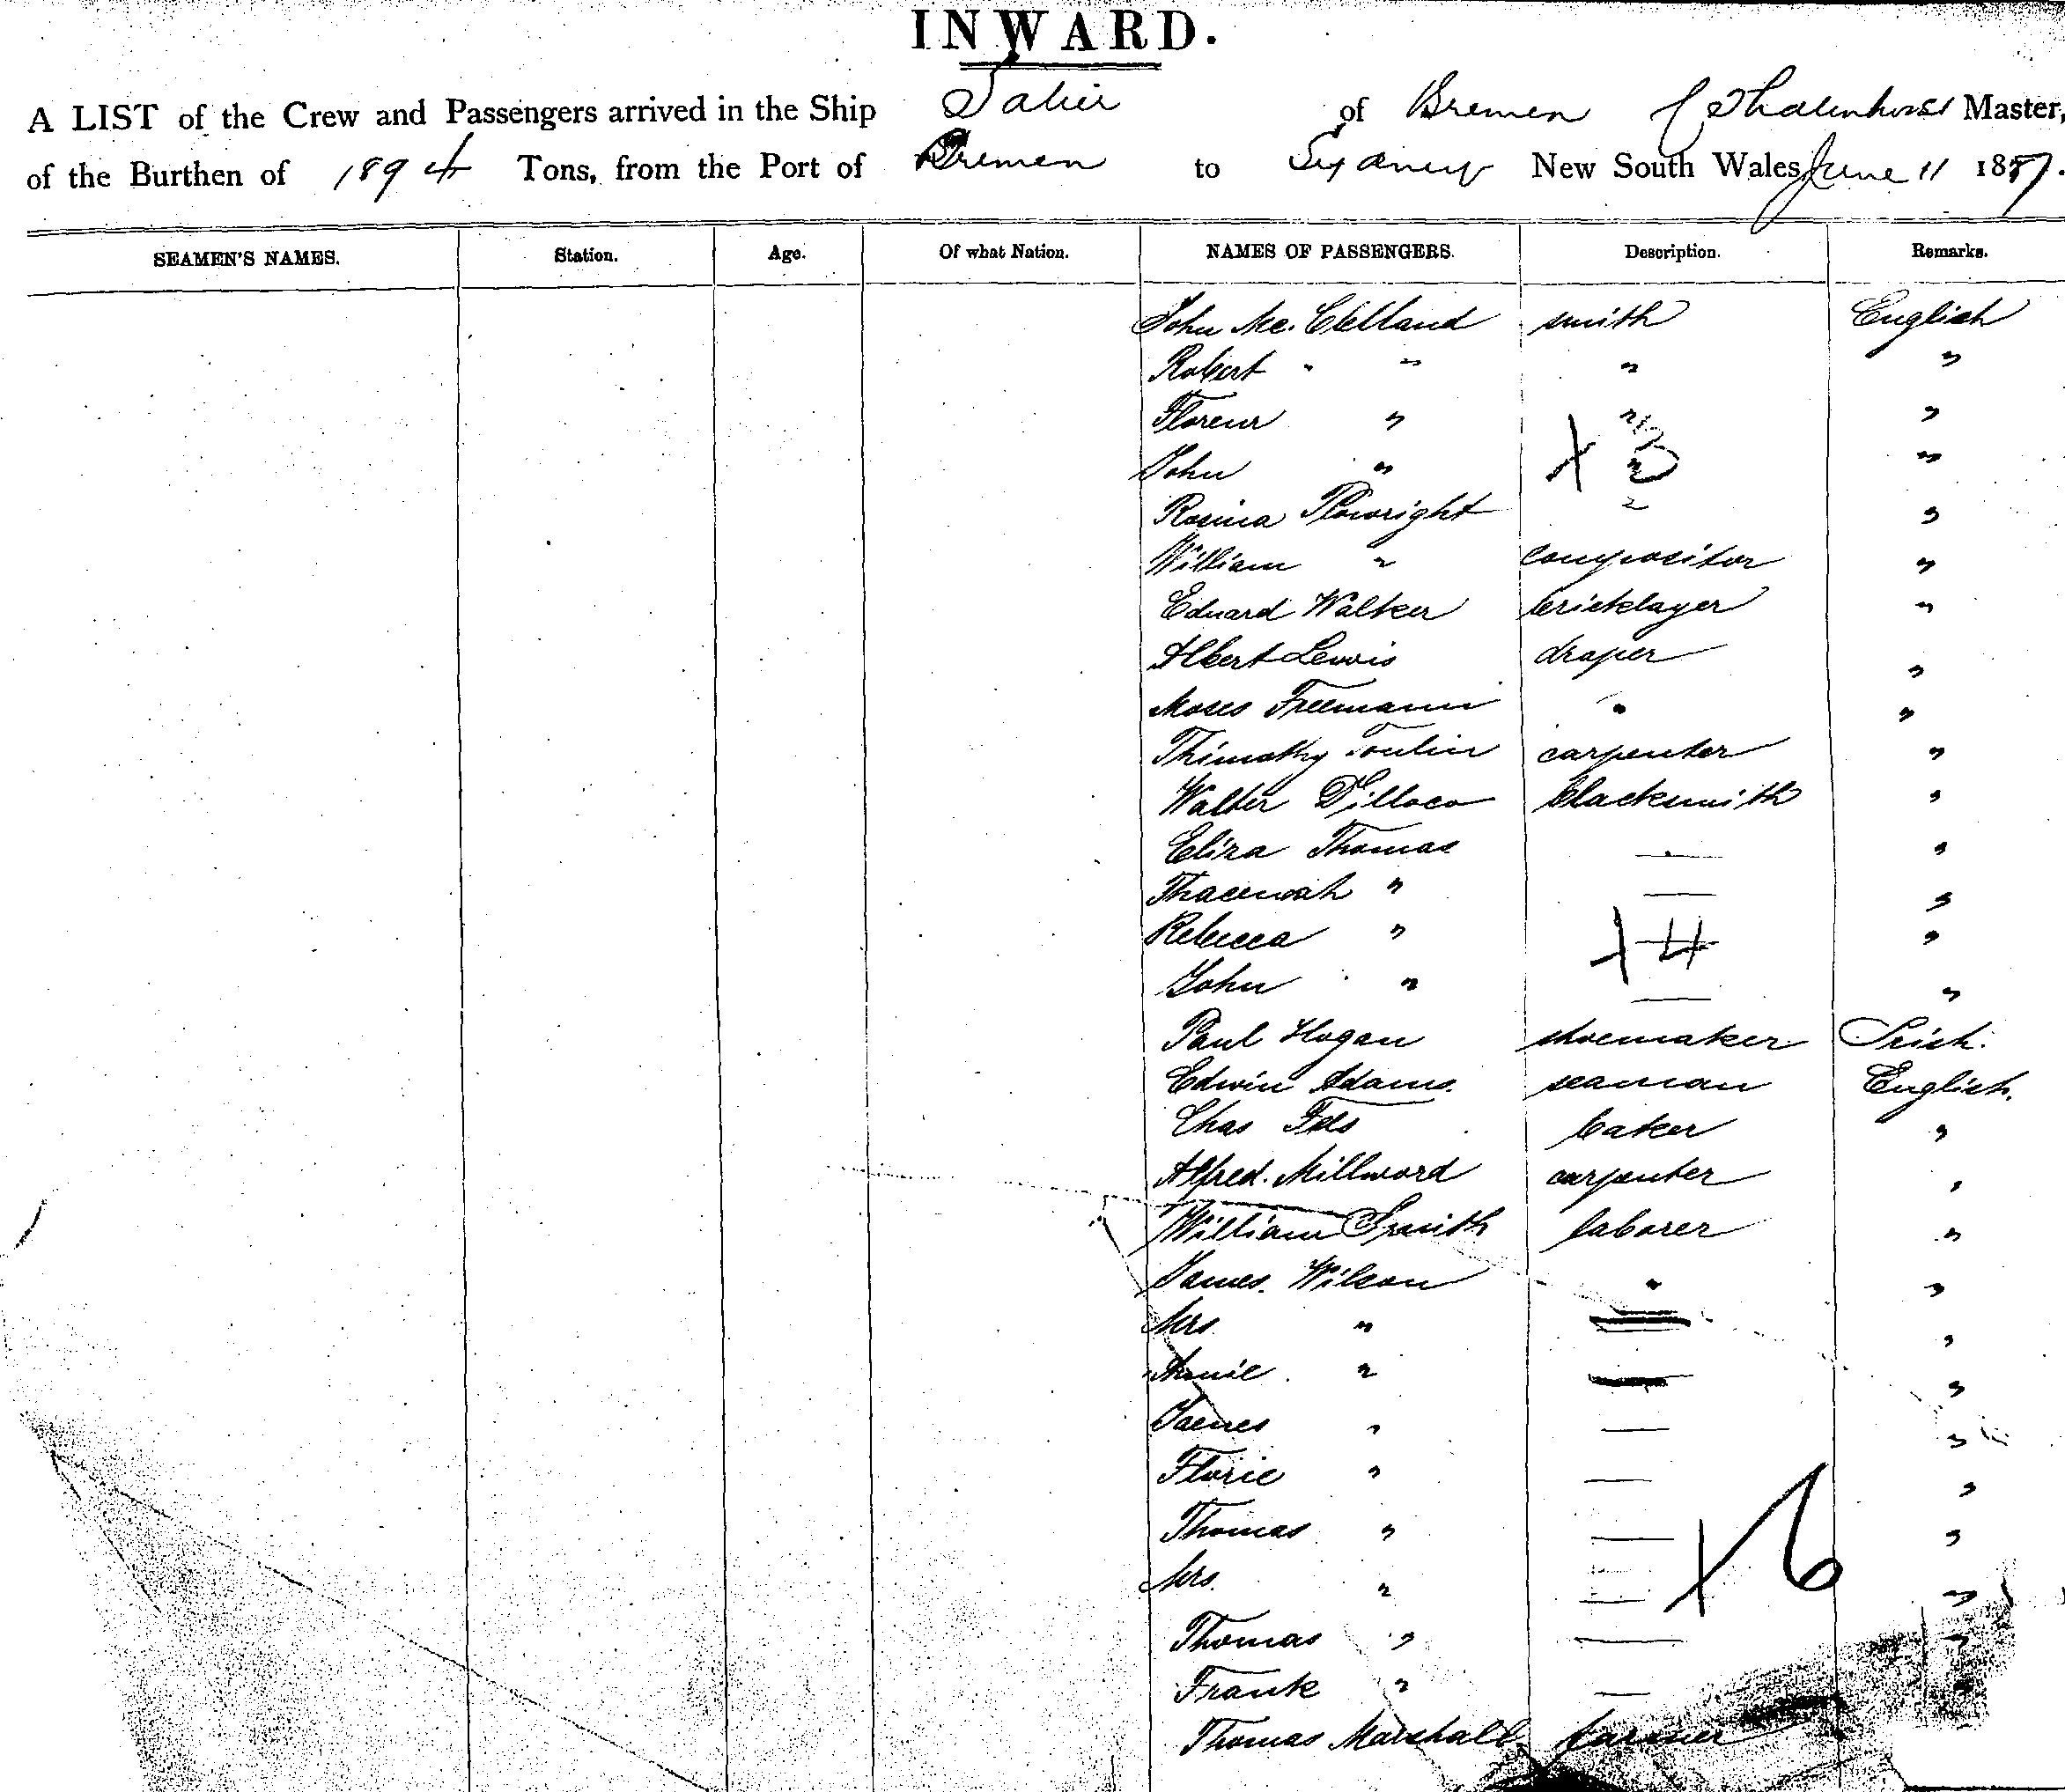 INWARD.
A LIST of the Crew and Passengers arrived in the Ship Salier of Bremen Master,
of the Burthen of 1894 Tons, from the Port of Bremen to Sydney New South Wales, June 11 1887.
SEAMEN'S NAMES. Station. Age. Of what Nation. NAMES OF PASSENGERS. Description. Remarks.
John Mc. Clelland smith English
Robert " " " "
" "
John " "
X 3
Rosina Plowright "
William " compositor "
Eduard Walker bricklayer "
Albert Lewis draper "
Moses Freemann " "
Thimothy carpenter "
Walter blacksmith "
Eliza Thomas — "
" — "
Rebecca " "
X 4
John " — "
Paul Hogan shoemaker Irish.
Edwin Adams. seaman English.
Chas baker "
Alfred. Millward carpenter "
William Smith laborer "
James. Wilson " "
Mrs " — "
" — "
James " — "
Florie " — "
Thomas " — "
X 6
Mrs. " — "
Thomas " — "
Frank " — "
Thomas Marshall farmer